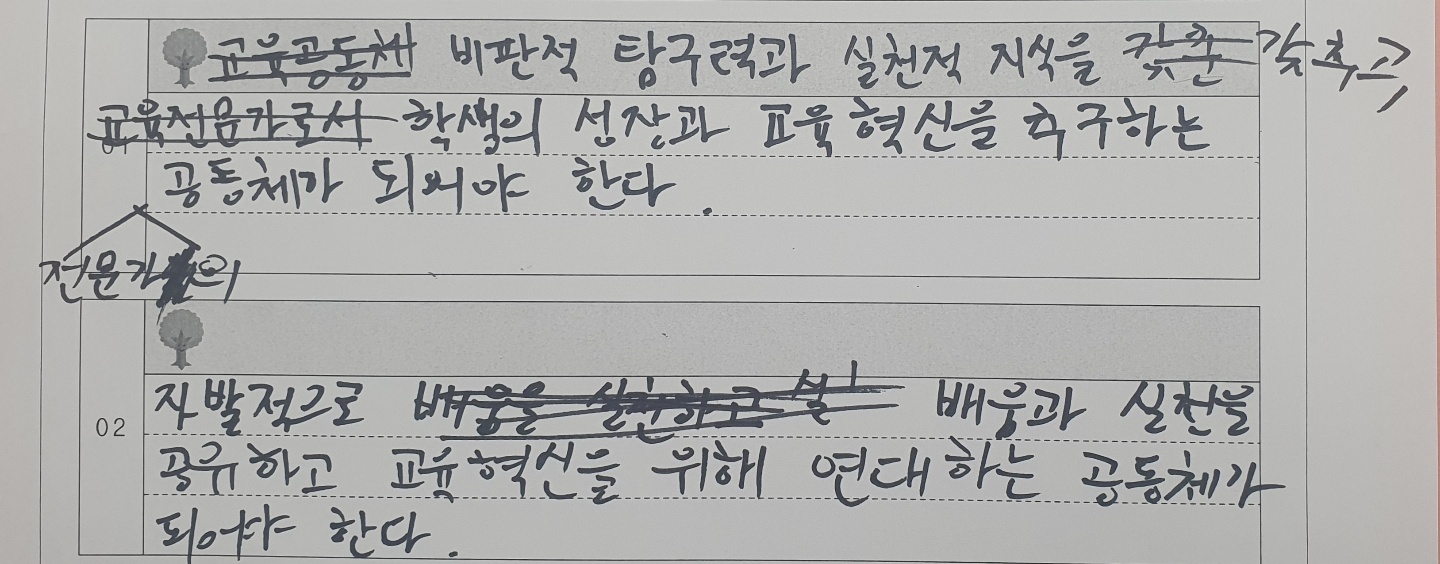 교육공동체 비판적 탐구력과 실천적 지식을 갖춘 갖추고,
교육전문가로서 학생의 성장과 교육혁신을 추구하는
01
공동체가 되어야 한다.
전문가 의
자발적으로 배움을 실천하고 실 배움과 실천을
02
공유하고 교육혁신을 위해 연대하는 공동체가
되어야 한다.